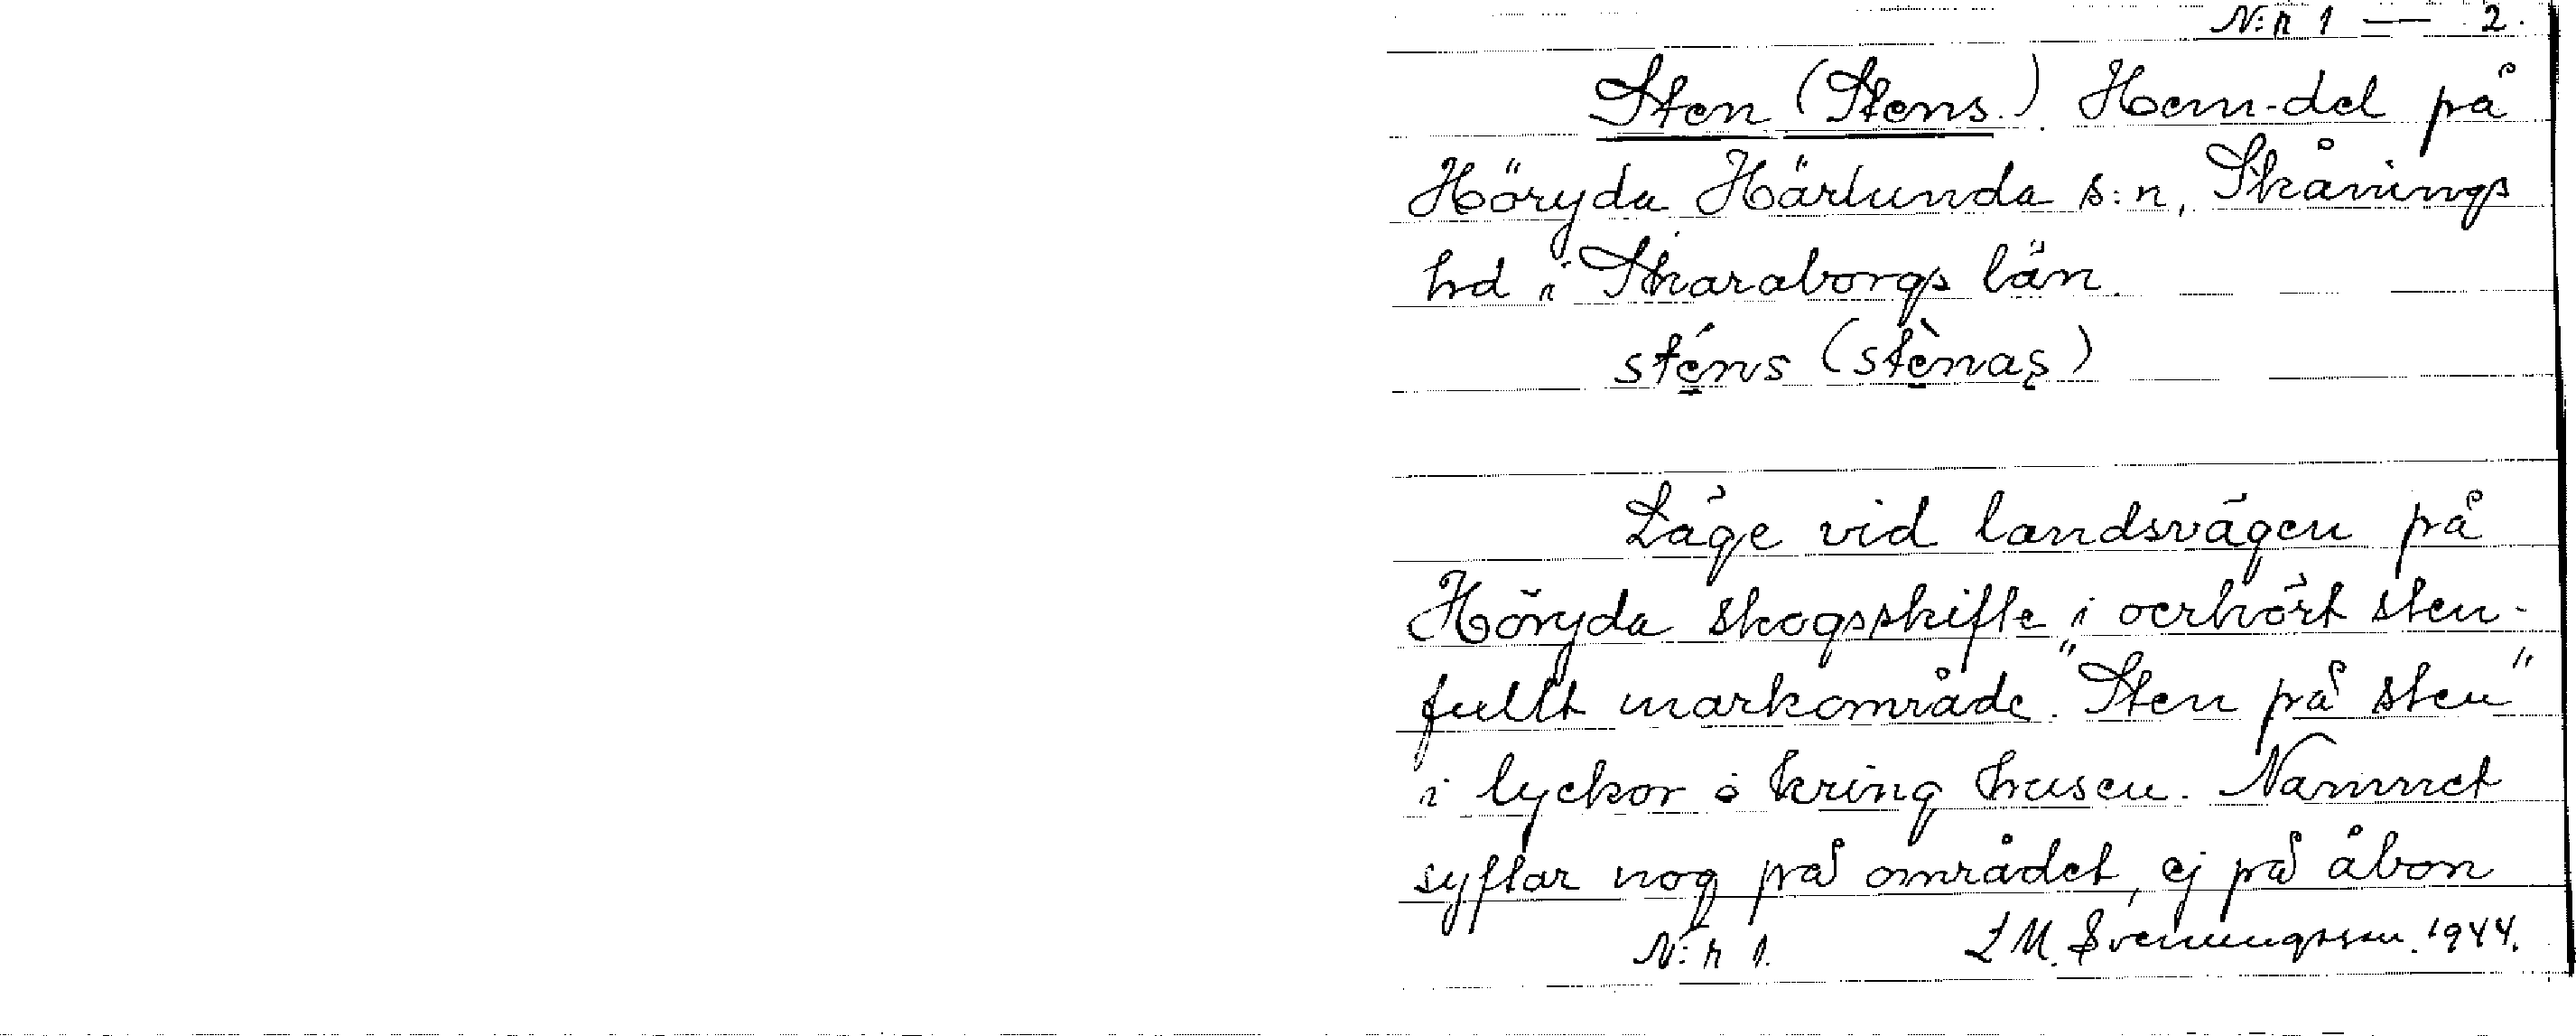 N:r 1 — 2.
Sten (Stens.). Hem-del på
Höryda Härlunda s:n, Skånings
hd i Skaraborgs län.
sténs (stènas)
Läge vid landsvägen på
Höryda skogsskifte i oerhört sten-
fullt markområde. "Sten på sten"
i lyckor o kring husen. Namnet
syftar nog på området, ej på åbon
N:r 1. L M. Svenungsson. 1944.